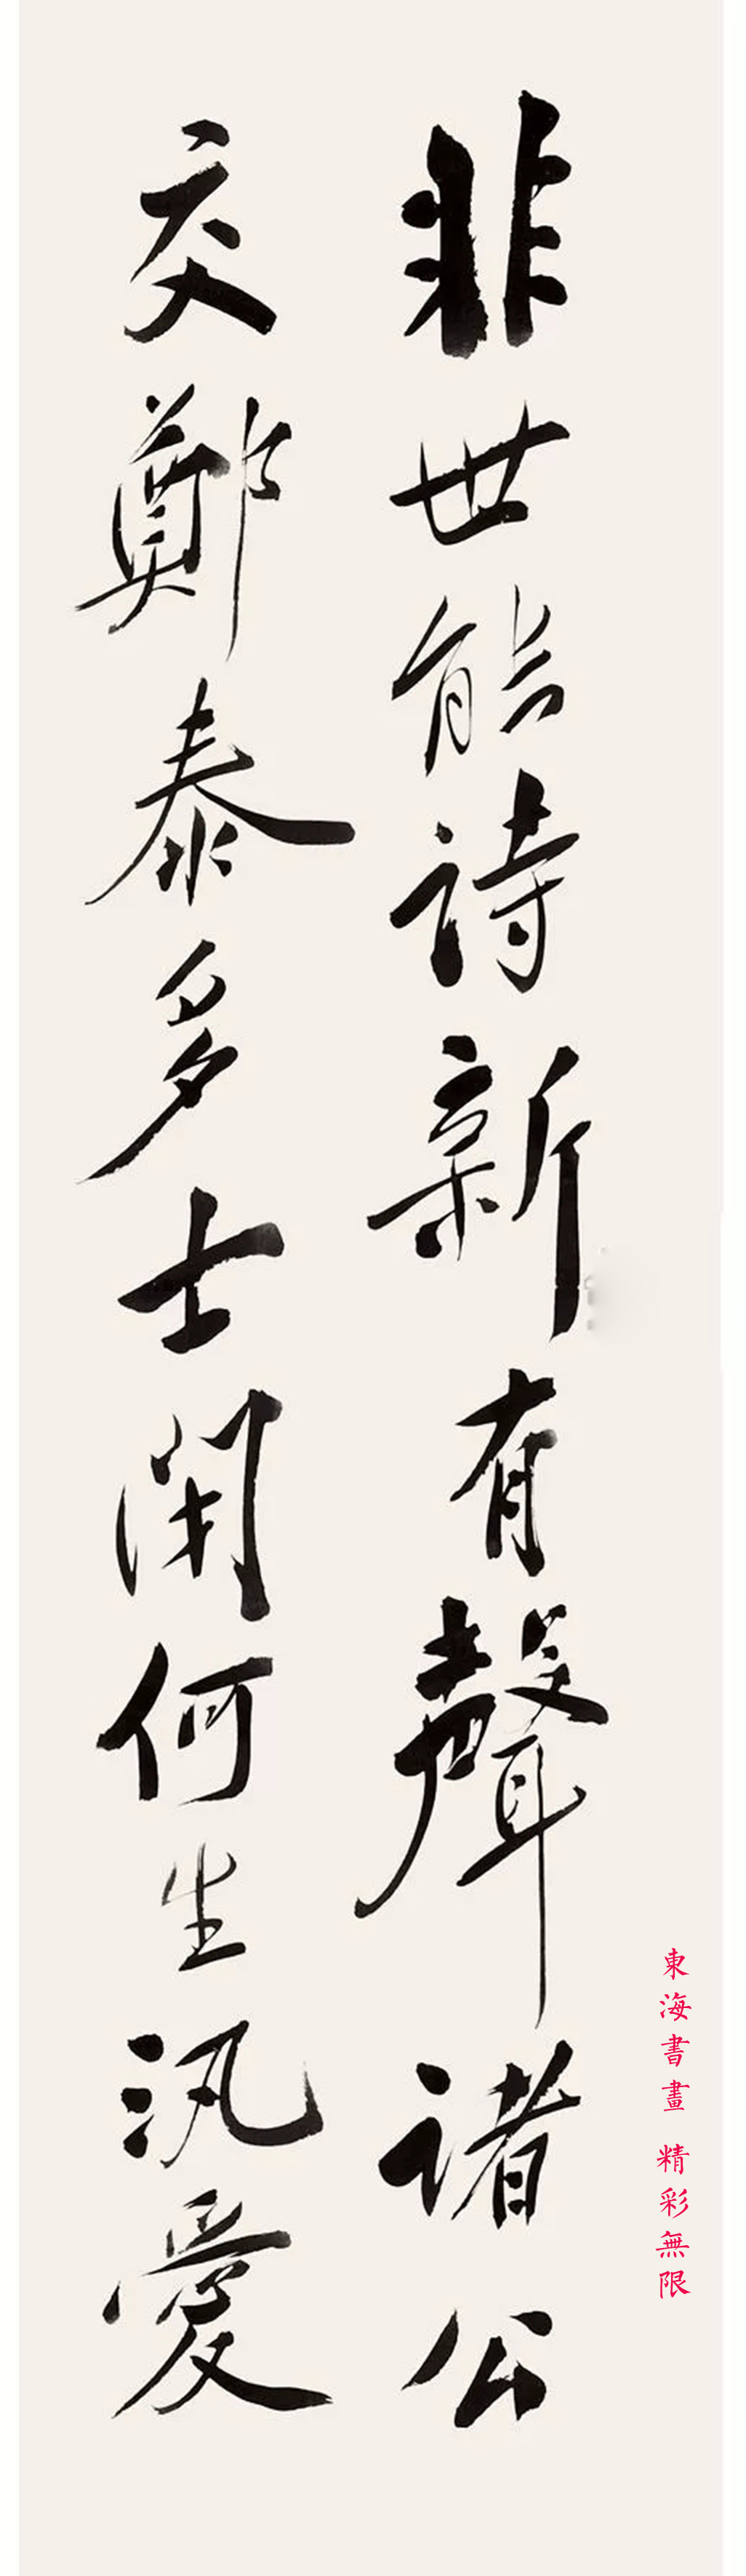 非世能詩新有聲諸公
交鄭泰多士閑何生汎愛
東海書畫 精彩無限